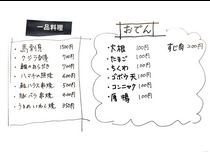 一品料理
・馬刺身 1500円
・クジラ刺身 700円
・鮭のあら炊き 700円
・ハマチの照焼 600円
・鮭ハラス串焼 500円
・豚バラ串焼 600円
・うるめいわし焼 350円
おでん
・大根 100円
・たまご 100円
・ちくわ 100円
・ゴボウ天 100円
・コンニャク 100円
・厚揚 100円
すじ肉 200円